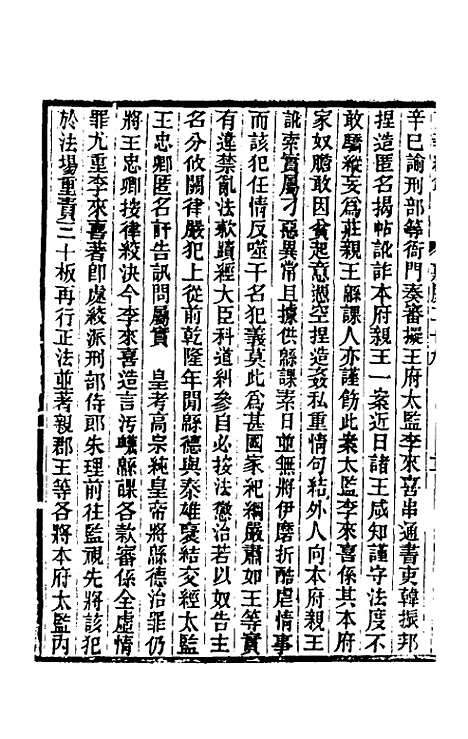 辛巳諭刑部等衙門奏審擬王府太監李來喜串通書吏韓振邦
捏造匿名揭帖訛詐本府親王一案近日諸王咸知謹守法度不
敢驕縱妄爲莊親王緜課人亦謹飭此案太監李來喜係其本府
家奴膽敢因貧起意憑空捏造姦私重情句結外人向本府親王
訛索實屬刁惡異常且據供緜課素日並無將伊磨折酷虐情事
而該犯任情反噬干名犯義莫此爲甚國家祀綱嚴肅如王等實
有違禁亂法款蹟經大臣科道糾參自必按法懲治若以奴告主
名分攸關律嚴犯上從前乾隆年閒緜德與秦雄襃結交經太監
王忠卿匿名訐告訊問屬實 皇考高宗純皇帝將緜德治罪仍
將王忠卿按律絞決今李來喜造言汚衊緜課各款審係全虛情
罪尤重李來喜著卽處絞派刑部侍郎朱理前往監視先將該犯
於法場重責三十板再行正法並著親郡王等各將本府太監內